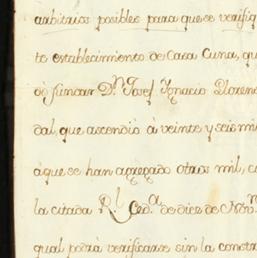 arbitrios posibles para que se verifiq
to establecimiento de Casa Cuna, qu
dó fundar Dⁿ Josef Ignacio Llorens
dal, que ascendió á veinte y seis mi
á que se han agregado otros mil, c
la citada Rˡ Cedᵃ de dice de Novⁿ
qual podrá verificarse sin la constr